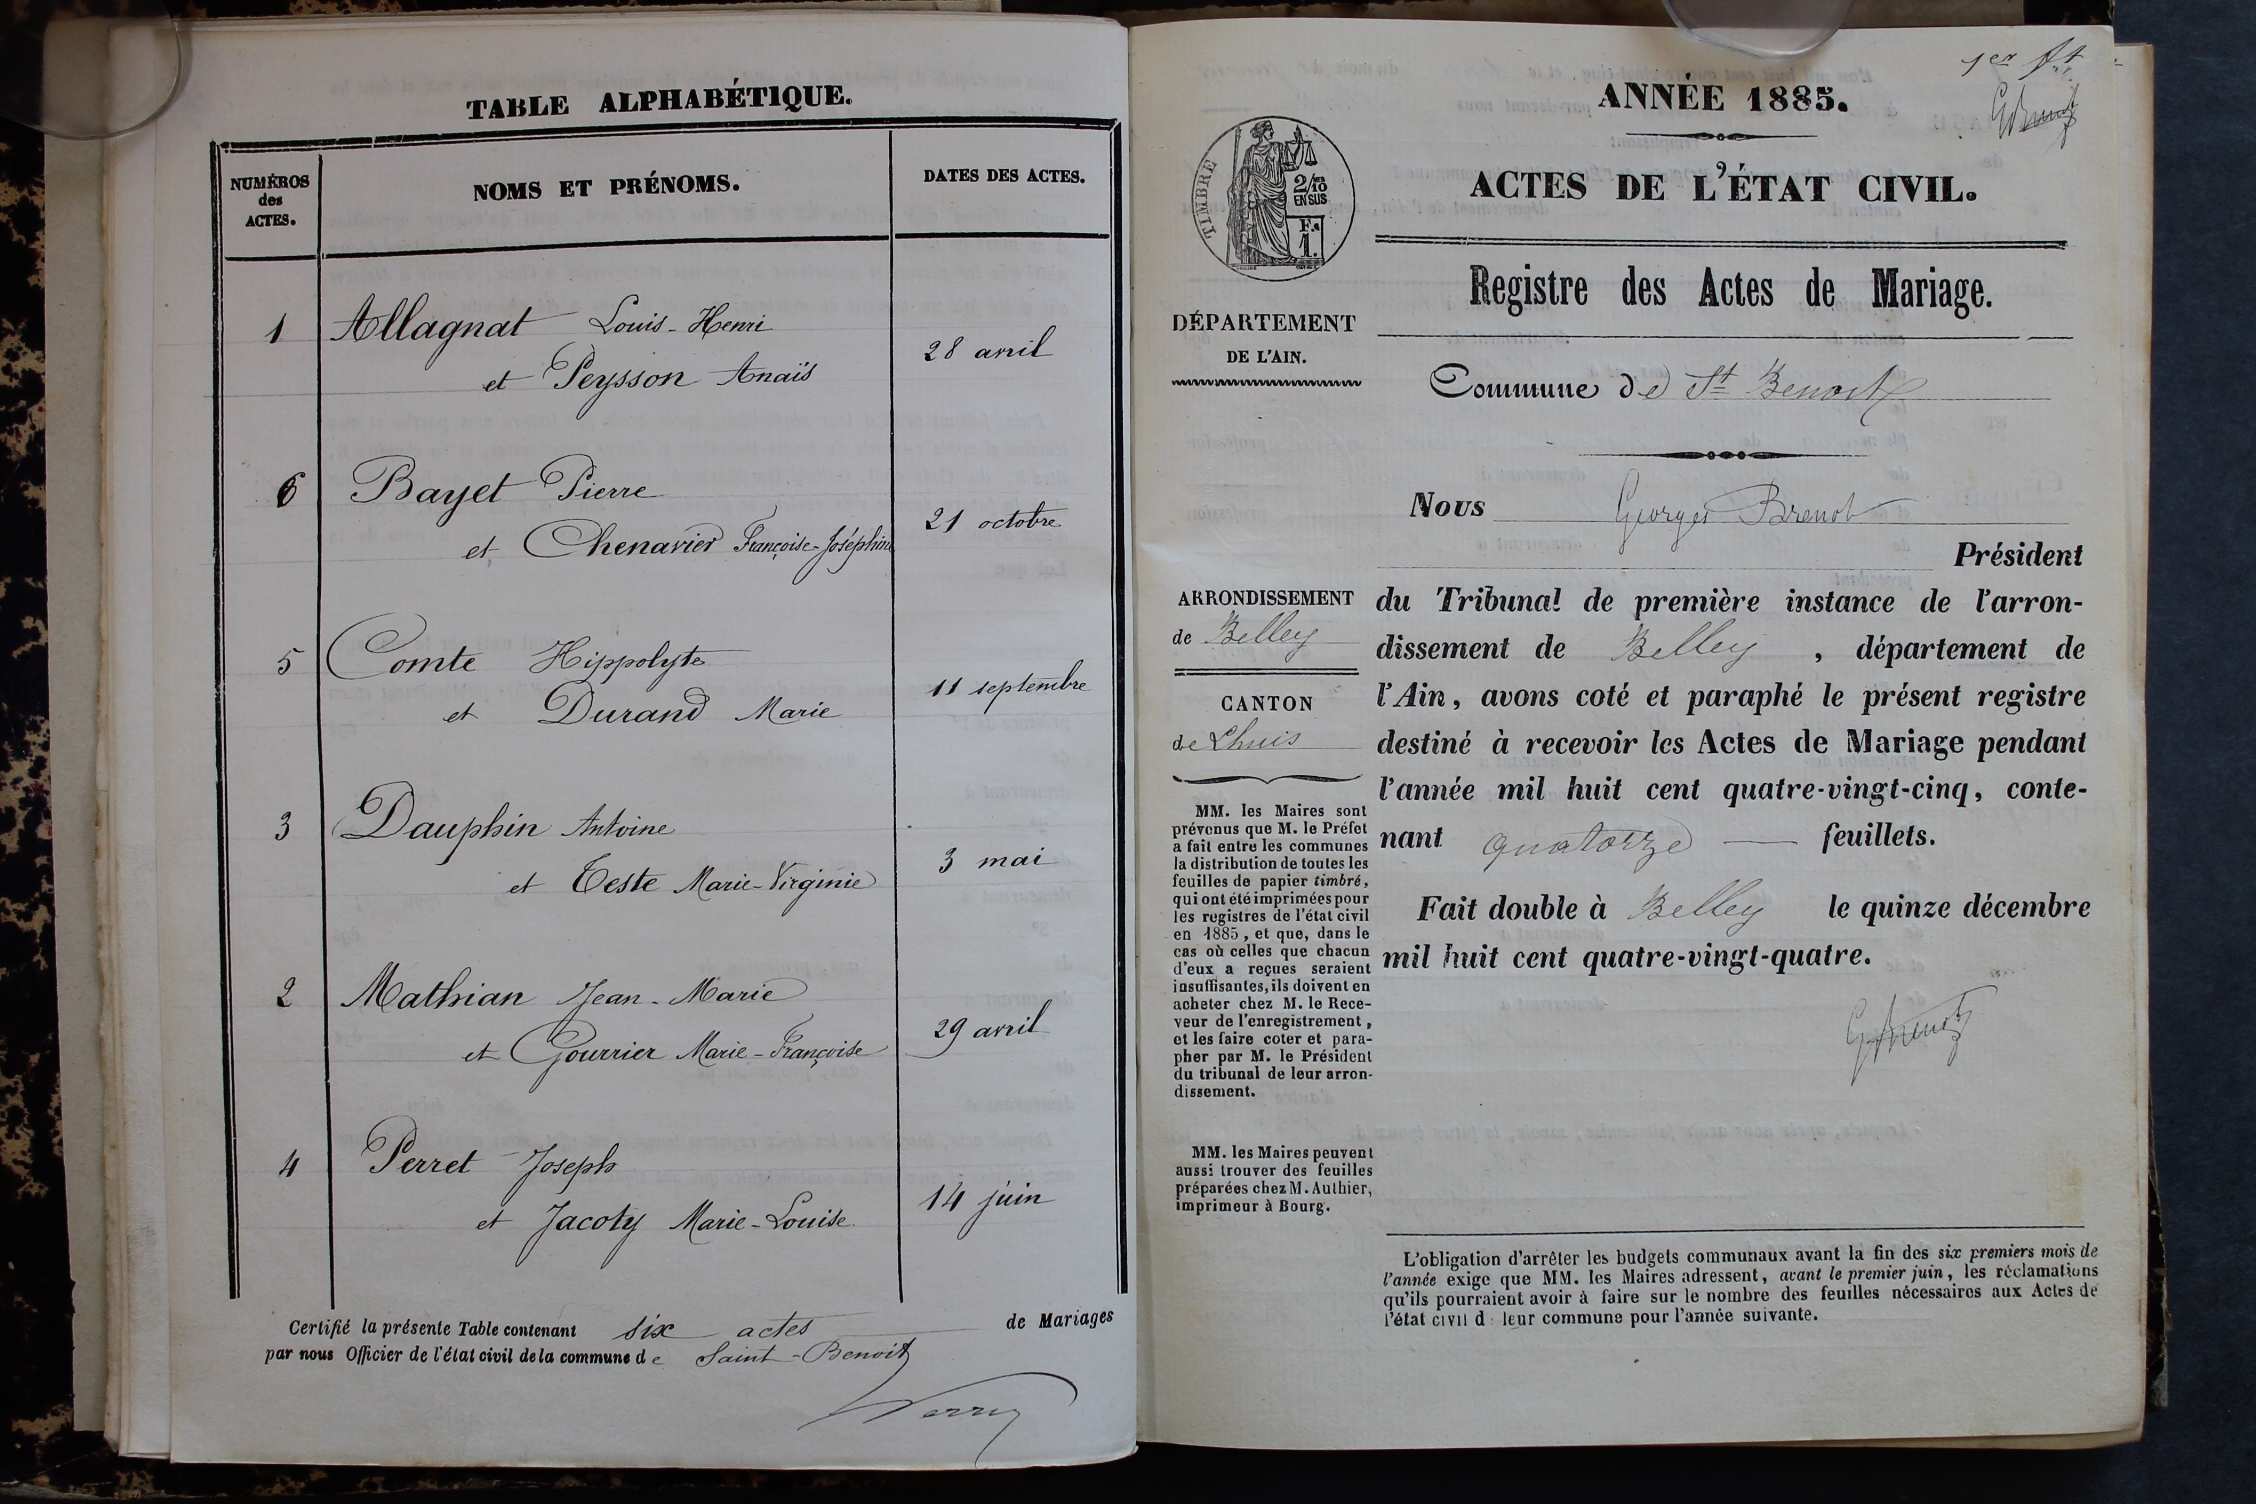 TABLE ALPHABÉTIQUE.
NUMÉROS
des
ACTES.
NOMS ET PRÉNOMS.
DATES DES ACTES.
1 Allagnat Louis-Henri
et Peysson Anaïs
28 avril
6 Bayet Pierre
et Chenavier Françoise-Joséphine
21 octobre
5 Comte Hippolyte
et Durand Marie
11 septembre
3 Dauphin Antoine
et Teste Marie-Virginie
3 mai
2 Mathian Jean-Marie
et Gourrier Marie-Françoise
29 avril
4 Perret Joseph
et Jacoty Marie-Louise
14 juin
Certifié la présente Table contenant six actes de Mariages
par nous Officier de l'état civil de la commune de Saint-Benoit
1er ft
ANNÉE 1885.
TIMBRE
2/10
EN SUS
1.
ACTES DE L'ÉTAT CIVIL.
Registre des Actes de Mariage.
DÉPARTEMENT
DE L'AIN.
Commune de St Benoit
Nous Georges Brenot
Président
ARRONDISSEMENT
de Belley
CANTON
de Lhuis
du Tribunal de première instance de l'arron-
dissement de Belley, département de
l'Ain, avons coté et paraphé le présent registre
destiné à recevoir les Actes de Mariage pendant
l'année mil huit cent quatre-vingt-cinq, conte-
nant quatorze feuillets.
Fait double à Belley le quinze décembre
mil huit cent quatre-vingt-quatre.
GBrenot
MM. les Maires sont
prévenus que M. le Préfet
a fait entre les communes
la distribution de toutes les
feuilles de papier timbré,
qui ont été imprimées pour
les registres de l'état civil
en 1885, et que, dans le
cas où celles que chacun
d'eux a reçues seraient
insuffisantes, ils doivent en
acheter chez M. le Rece-
veur de l'enregistrement,
et les faire coter et para-
pher par M. le Président
du tribunal de leur arron-
dissement.
MM. les Maires peuvent
aussi trouver des feuilles
préparées chez M. Authier,
imprimeur à Bourg.
L'obligation d'arrêter les budgets communaux avant la fin des six premiers mois de
l'année exige que MM. les Maires adressent, avant le premier juin, les réclamations
qu'ils pourraient avoir à faire sur le nombre des feuilles nécessaires aux Actes de
l'état civil d leur commune pour l'année suivante.